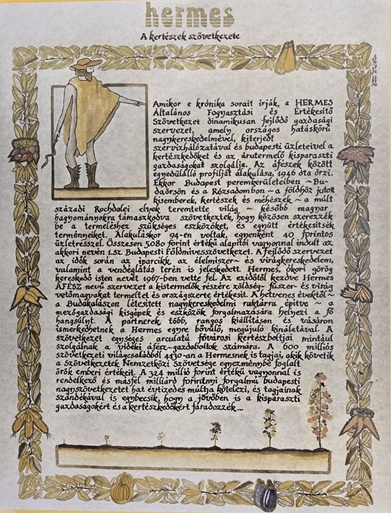 hermes
A kertészek szövetkezete
Amikor e krónika sorait írják, a HERMES
Általános Fogyasztási és Értékesítő
Szövetkezet dinamikusan fejlődő gazdasági
szervezet, amely országos hatáskörű
nagykereskedelmével, kiterjedt
szervizhálózatával és budapesti üzleteivel a
kertészkedőket és az árutermelő kisparaszti
gazdaságokat szolgálja. Az áfészek között
egyedülálló profilját alakulása, 1946 óta őrzi.
Ekkor Budapest peremkerületeiben ~ Bu-
daörsön és a Rózsadombon ~ a földhöz jutott
kisemberek, kertészek és méhészek ~ a múlt
századi Rochdalei elvek teremtette világ ~ később magyar
hagyományokra támaszkodva szövetkeztek, hogy közösen szerezzék
be a termeléshez szükséges eszközöket, és együtt értékesítsék
terményeiket. Alakuláskor 94-en voltak, egyenként 40 forintos
üzletrésszel. Összesen 5080 forint értékű alapítói vagyonnal indult az
akkori nevén I.sz. Budapesti Földművesszövetkezet. A fejlődő szervezet
az idők során az iparcikk, az élelmiszer- és virágkereskedelem,
valamint a vendéglátás terén is jeleskedett. Hermes, ókori görög
kereskedő isten nevét 1967-ben vette fel. Az ezidőtől kezdve Hermes
ÁFÉSZ nevű szervezet a kistermelők részére zöldség- fűszer- és virág
vetőmagvakat termeltet és országszerte értékesít. A hetvenes évektől ~
a Budakalászon létesített nagykereskedelmi raktárra építve ~ a
mezőgazdasági kisgépek és eszközök forgalmazására helyezi a fő
hangsúlyt. A partnerek több, rangos kiállításon és vásáron
ismerkedhetnek a Hermes egyre bővülő, megújuló kínálatával. A
szövetkezet egységes arculatú fővárosi kertészboltjai mintául
szolgálnak a vidéki áfész-gazdaboltok számára. A 600 milliós
szövetkezeti világcsaládból 4430-an a Hermesnek is tagjai, akik követik
a Szövetkezetek Nemzetközi Szövetsége egyezményébe foglalt
örök emberi értékeit. A 324 millió forint értékű vagyonnal is
rendelkező és másfél milliárd forintnyi forgalmú budapesti
nagyszövetkezetet hat évtizedes múltja kötelezi, és tagjainak
szándékával is egybecsik, hogy a jövőben is a kisparaszti
gazdaságokért és a kertészkedőkért fáradozzék...